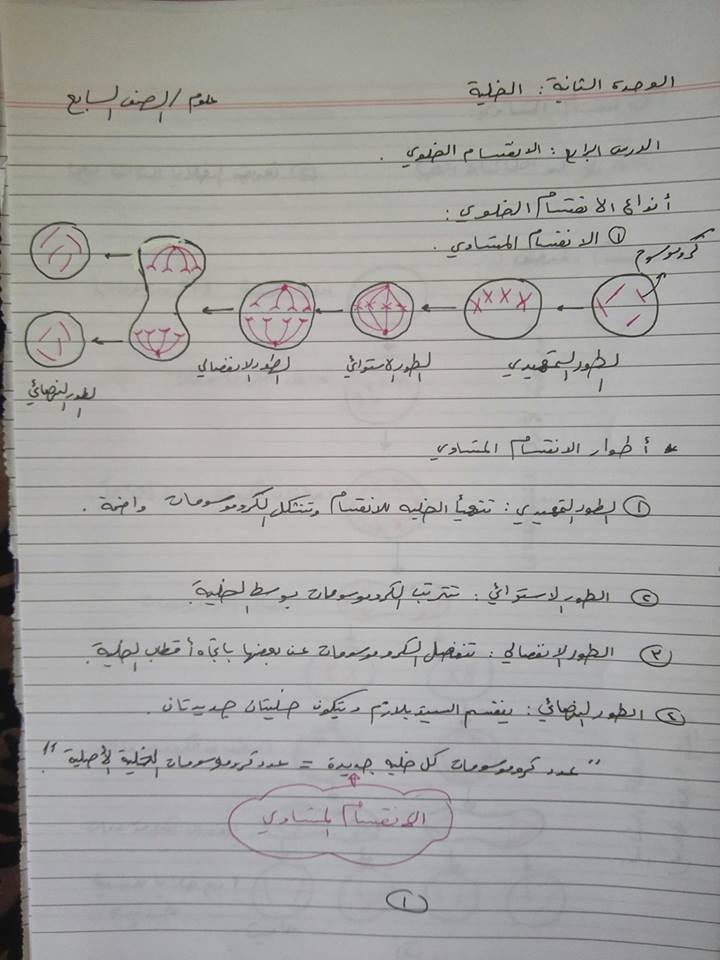 الوحدة الثانية : الخلية
علوم / الصف السابع
الدرس الرابع : الانقسام الخلوي .
أنواع الانقسام الخلوي :
① الانقسام المتساوي .
كروموسوم
الطور التمهيدي
الطور الاستوائي
الطور الانفصالي
الطور النهائي
* أطوار الانقسام المتساوي
① الطور التمهيدي : تتهيأ الخليه للانقسام وتتشكل الكروموسومات واضحة .
② الطور الاستوائي : تترتب الكروموسومات بوسط الخلية .
③ الطور الانفصالي : تنفصل الكروموسومات عن بعضها باتجاه أقطاب الخلية .
④ الطور النهائي : ينقسم السيتوبلازم ويتكون خليتان جديدتان .
" عدد كروموسومات كل خليه جديدة = عدد كروموسومات الخلية الأصلية " !
الانقسام المتساوي
①